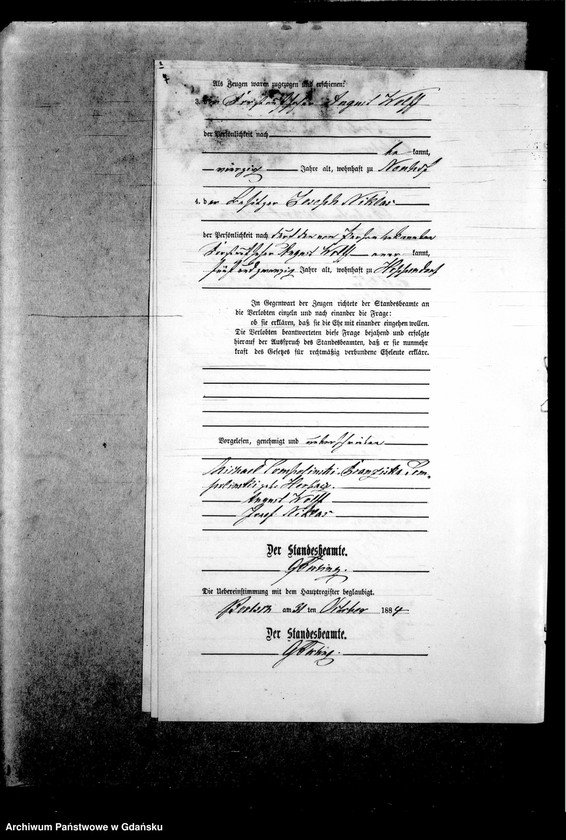 Als Zeugen waren zugezogen und erschienen:
3. der August Wolff
der Persönlichkeit nach
be kannt,
vierzig Jahre alt, wohnhaft zu
4. der Besitzer Joseph Niklas
der Persönlichkeit nach durch den von Person bekannten
August Wolff aner kannt,
fünf und zwanzig Jahre alt, wohnhaft zu
In Gegenwart der Zeugen richtete der Standesbeamte an
die Verlobten einzeln und nach einander die Frage:
ob sie erklären, daß sie die Ehe mit einander eingehen wollen.
Die Verlobten beantworteten diese Frage bejahend und erfolgte
hierauf der Ausspruch des Standesbeamten, daß er sie nunmehr
kraft des Gesetzes für rechtmäßig verbundene Eheleute erkläre.
Vorgelesen, genehmigt und unterschrieben
Michael Franziska
geb.
August Wolff
Josef Niklas
Der Standesbeamte.
Die Uebereinstimmung mit dem Hauptregister beglaubigt.
am 21 ten Oktober 1884
Der Standesbeamte.
Archiwum Państwowe w Gdańsku